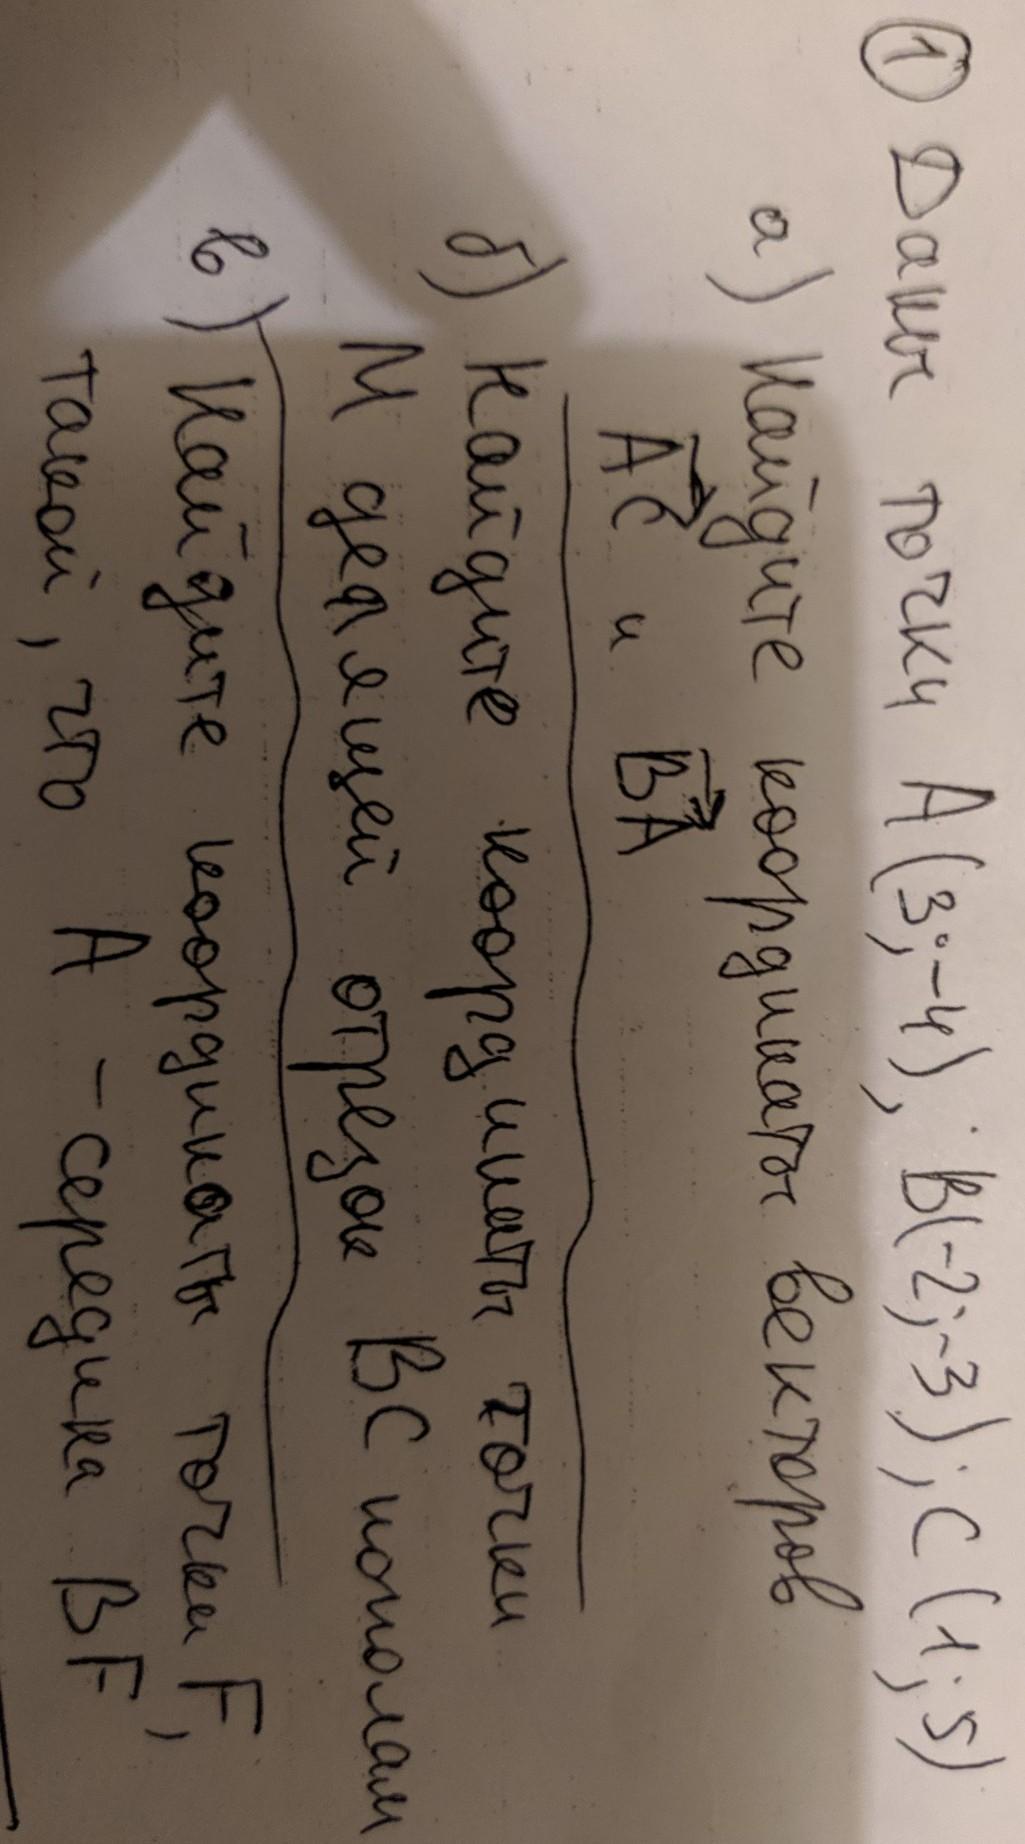 ① Даны точки A(3;-4), B(-2;-3), C(1;5)
а) Найдите координаты векторов
AC и BA
б) Найдите координаты точки
М делящей отрезок BC пополам
в) Найдите координаты точки F,
такой, что A - середина BF